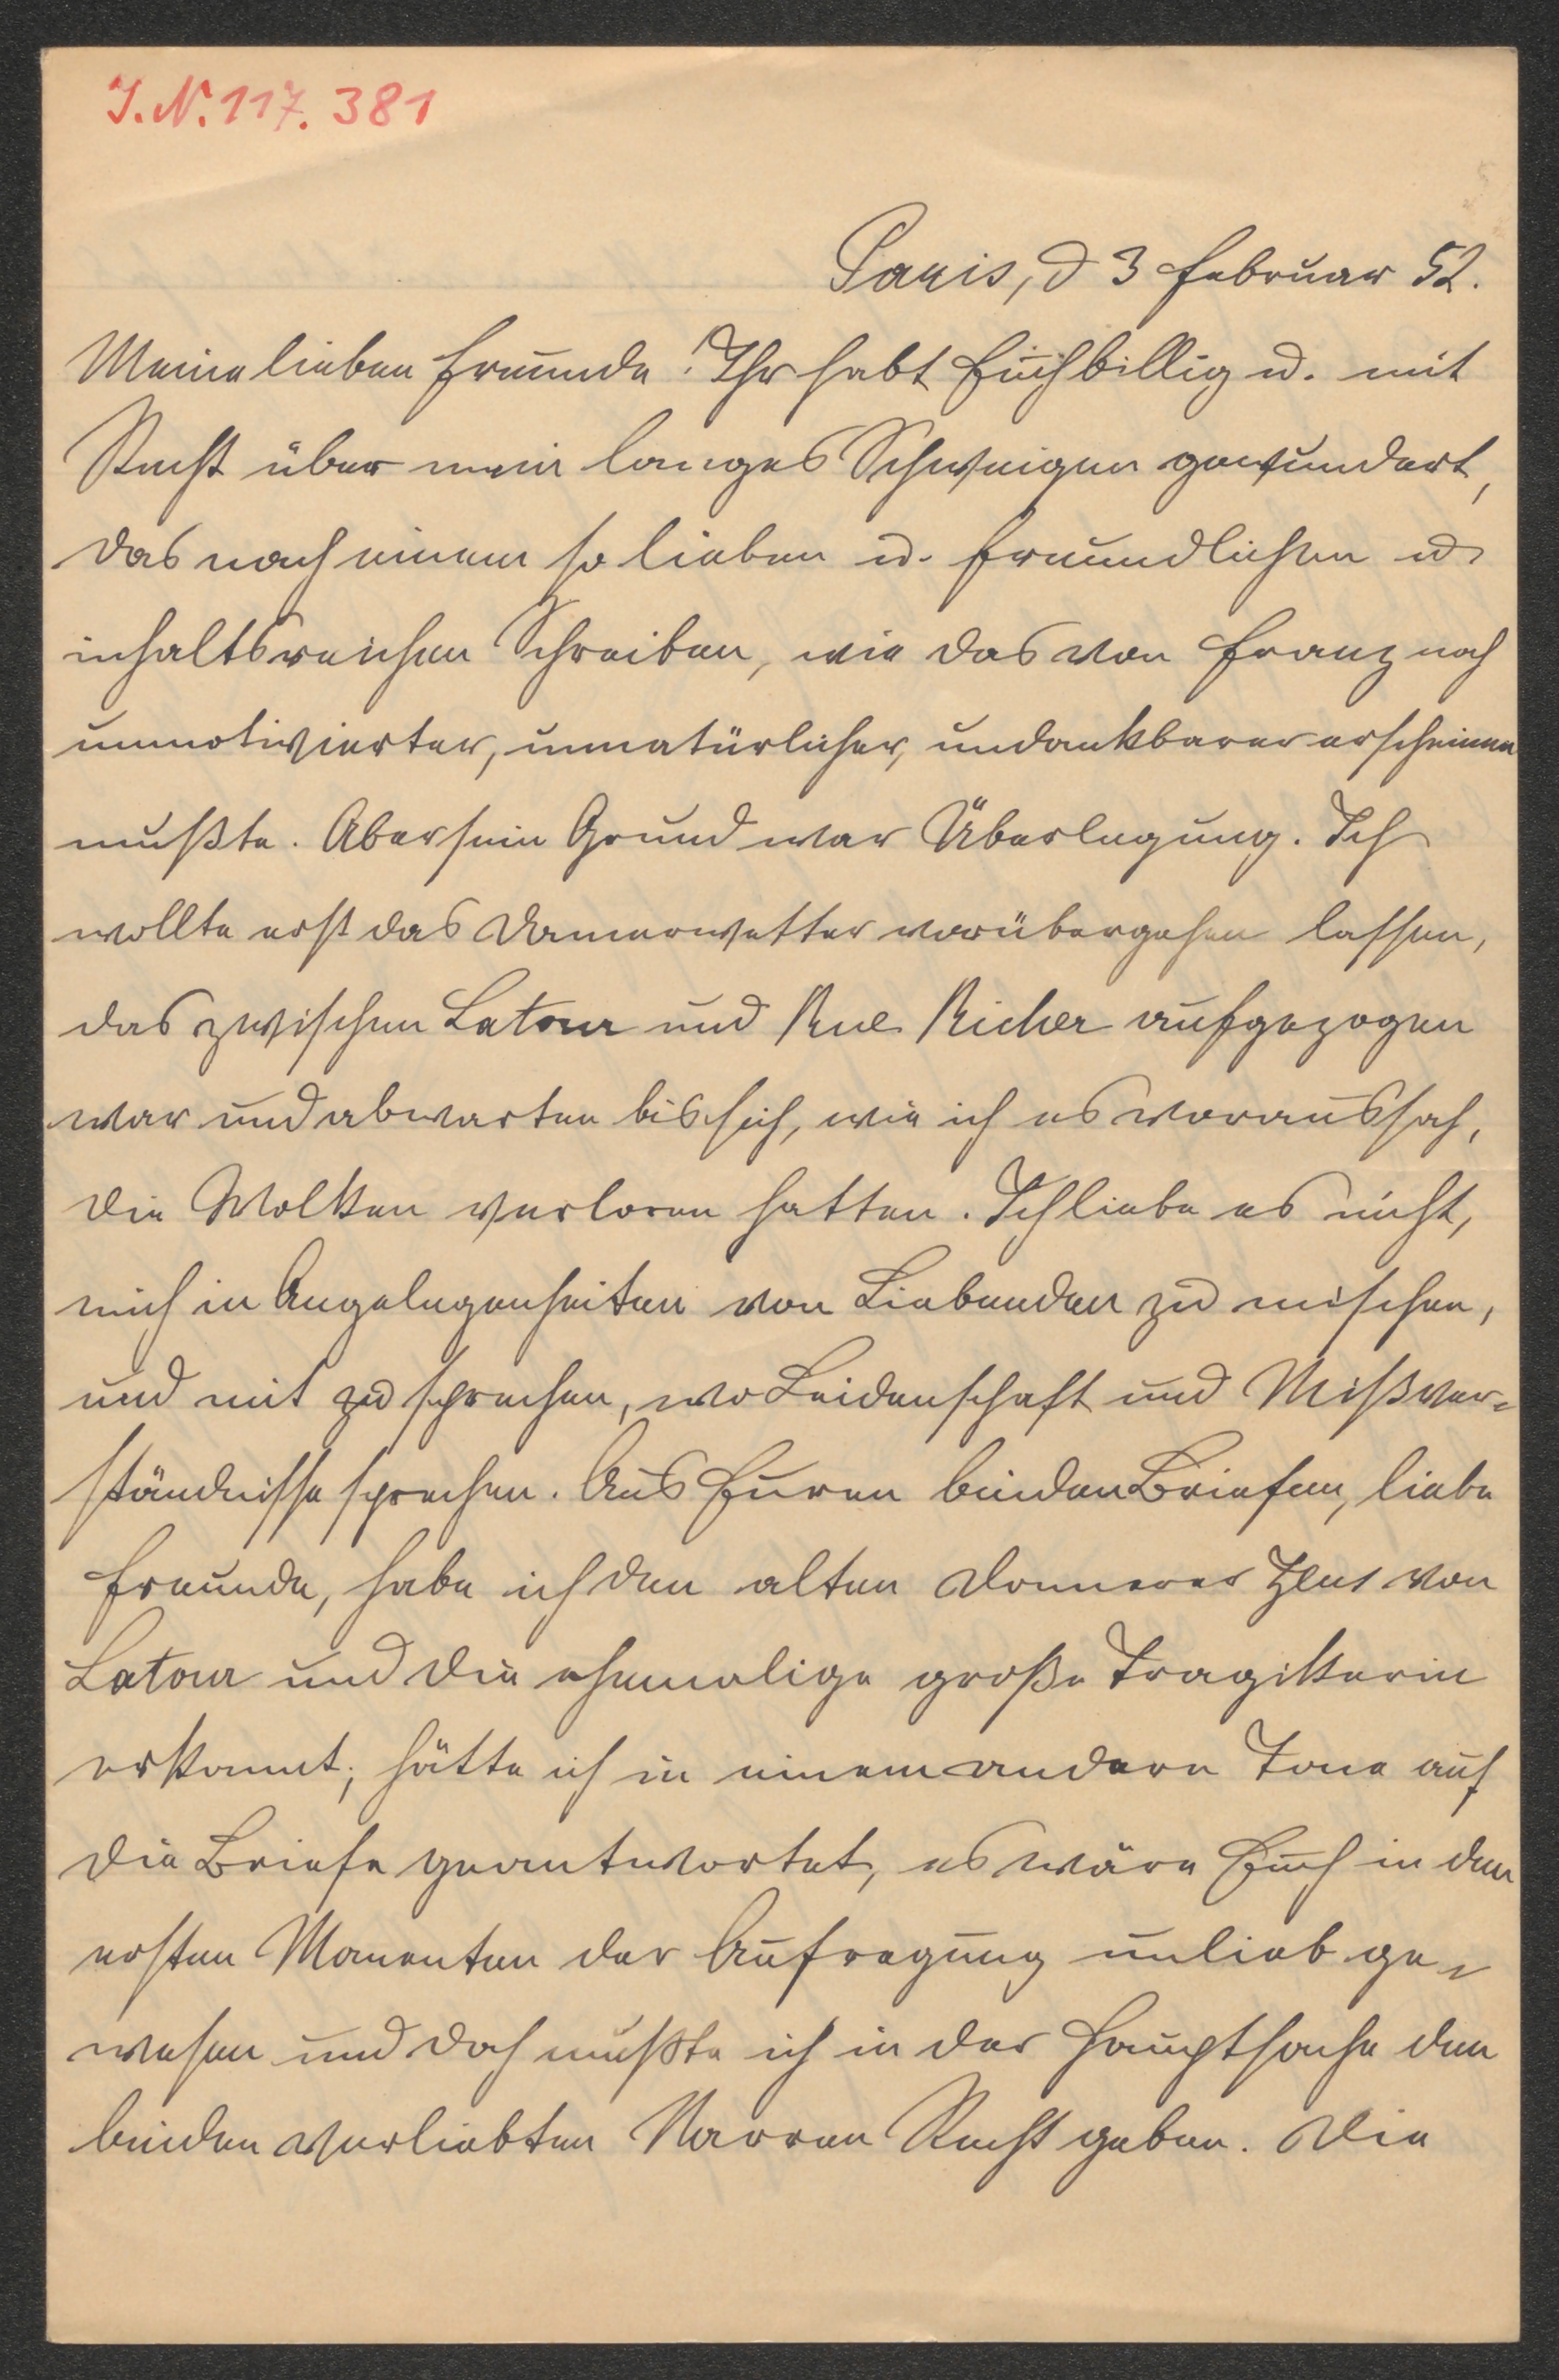 J.N. 117.381
Paris, d 3 Februar 52.
Meine lieben Freunde! Ihr habt Euch billig u. mit
Recht über mein langes Schweigen gewundert,
das nach einem so lieben u. freundlichen u.
inhaltsreichen Schreiben, wie das von Franz noch
unmotivierter, unnatürlicher, undankbarer erscheinen
mußte. Aber sein Grund war Überlegung. Ich
wollte erst das Donnerwetter vorübergehen lassen,
das zwischen Latour und Rue Richer aufgezogen
war und abwarten bis sich, wie ich es voraussah,
die Wolken verloren hatten. Ich liebe es nicht,
mich in Angelegenheiten von Liebenden zu mischen,
und mit zu sprechen, wo Leidenschaft und Mißver-
ständnisse sprechen. Aus Euren beiden Briefen, liebe
Freunde, habe ich den alten Donnerer Zeus von
Latour und die ehemalige große Tragikerin
erkannt; hätte ich in einem andern Tone auf
die Briefe geantwortet, es wäre Euch in den
ersten Momenten der Aufregung unlieb ge-
wesen und doch mußte ich in der Hauptsache den
beiden verliebten Narren Recht geben. Die